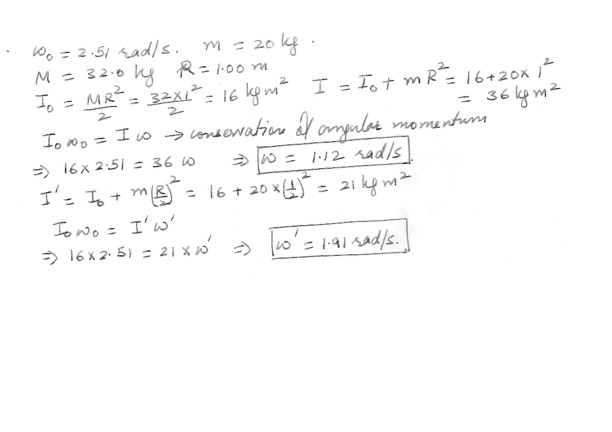 ω₀ = 2.51 rad/s. m = 20 kg.
M = 32.0 kg R = 1.00 m
I₀ = MR²/2 = 32×1²/2 = 16 kgm² I = I₀ + mR² = 16+20×1²
= 36 kgm²
I₀ω₀ = Iω → conservation of angular momentum
⇒ 16×2.51 = 36 ω ⇒ ω = 1.12 rad/s.
I' = I₀ + m(R/2)² = 16 + 20×(1/2)² = 21 kgm²
I₀ω₀ = I'ω'
⇒ 16×2.51 = 21×ω' ⇒ ω' = 1.91 rad/s.